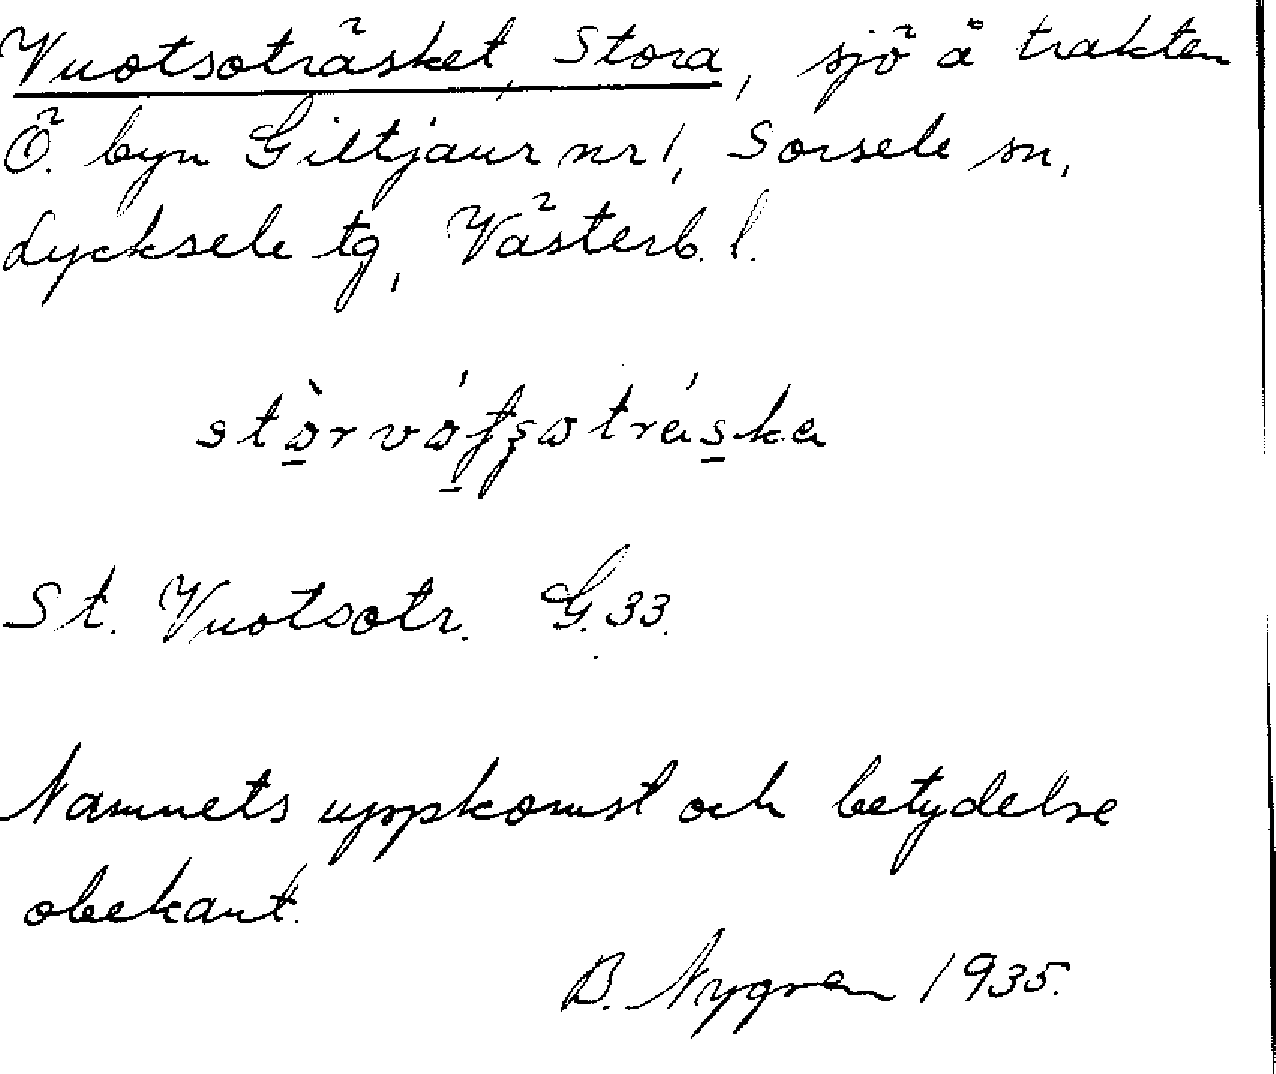 Vuotsoträsket, Stora, sjö å trakten
Ö. byn Giltjaur nr 1, Sorsele sn,
Lycksele tg, Västerb. l.
St. Vuotsotr. G. 33.
Namnets uppkomst och betydelse
obekant.
B. Nygren 1935.